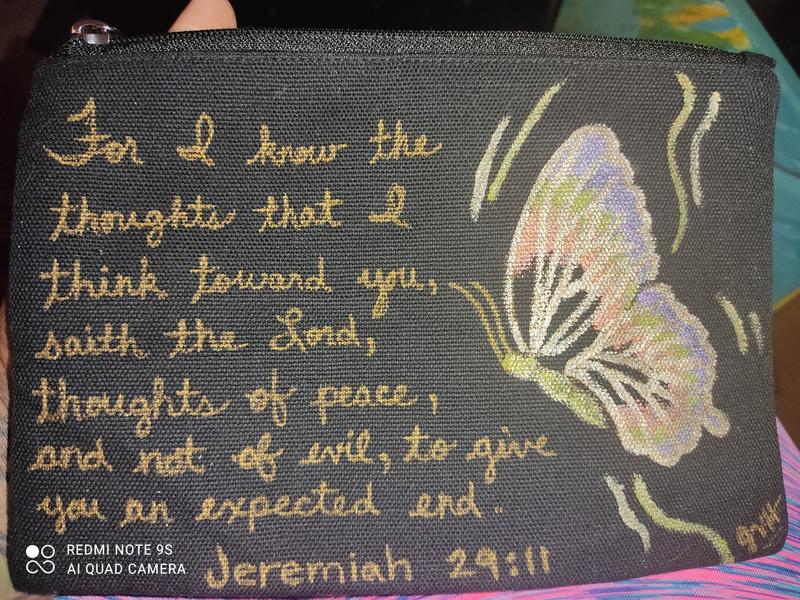 For I know the
thoughts that I
think toward you,
saith the Lord,
thoughts of peace,
and not of evil, to give
you an expected end.
Jeremiah 29:11
REDMI NOTE 9S
AI QUAD CAMERA